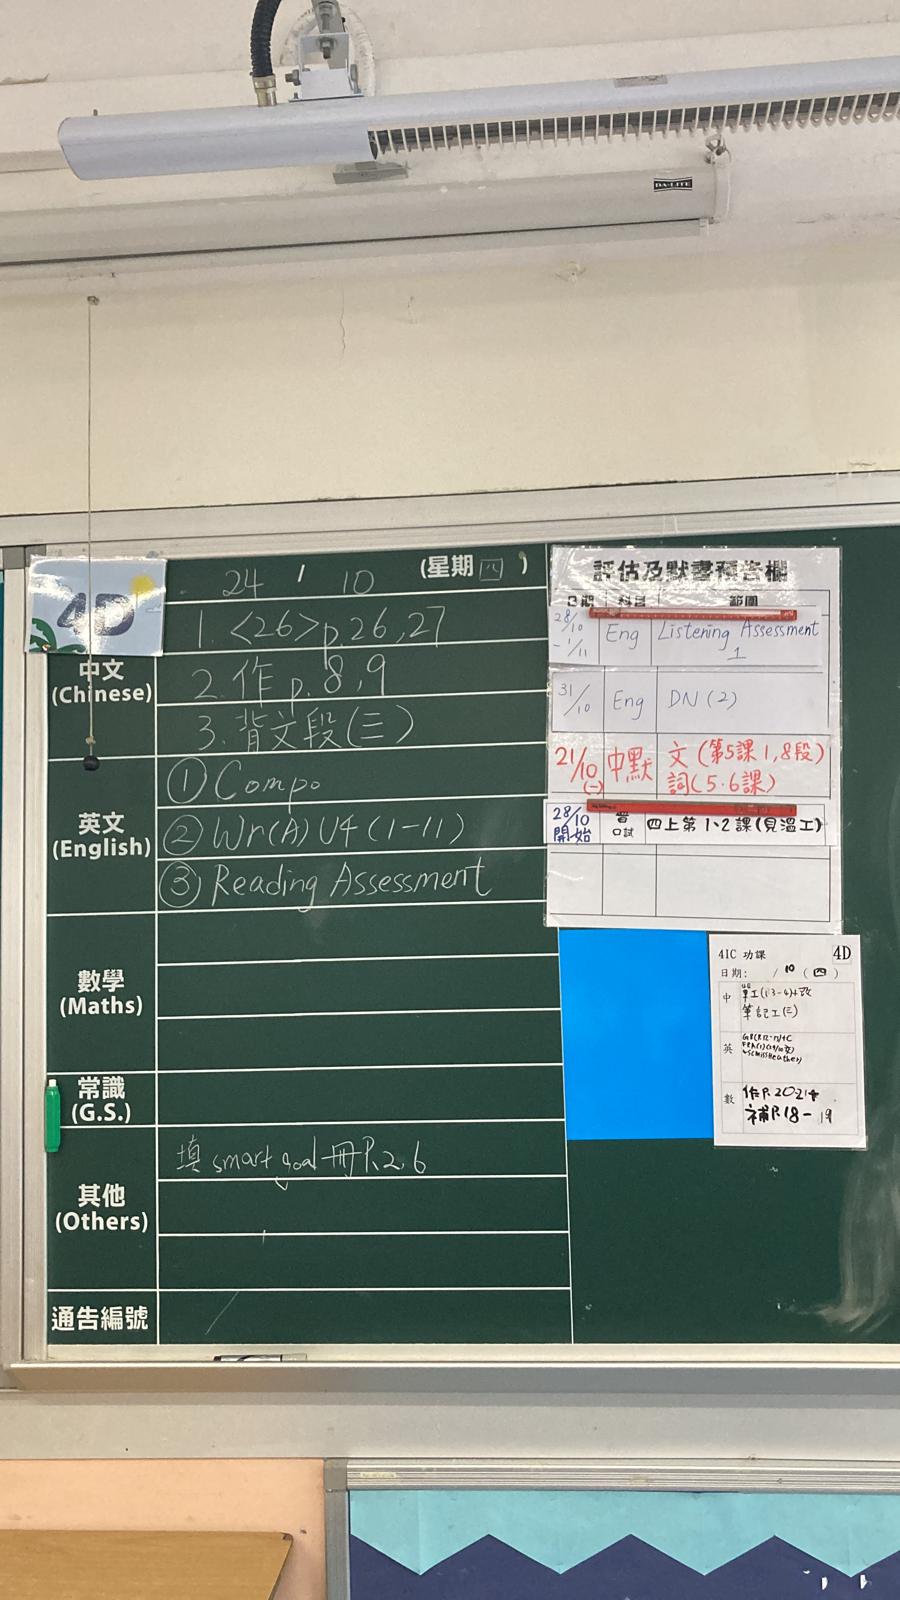 DA-LITE
4D
24 / 10 (星期 四 )
中文
(Chinese)
1. <26> p.26,27
2. 作 p.8,9
3. 背文段(三)
英文
(English)
① Compo
② Wr(A) U4 (1-11)
③ Reading Assessment
數學
(Maths)
常識
(G.S.)
其他
(Others)
填 smart goal 冊 P.2, 6
通告編號
/
評估及默書預告欄
日期 科目 範圍
28/10 - 1/11 Eng Listening Assessment 1
31/10 Eng DN (2)
21/10 (一) 中默 文 (第5課 1, 8段)
詞 (5.6課)
28/10 開始 口試 四上第 1、2 課(見溫工)
4IC 功課 4D
日期: / 10 ( 四 )
中
筆記工(三)
英
數 作P.20-21+
補P.18-19